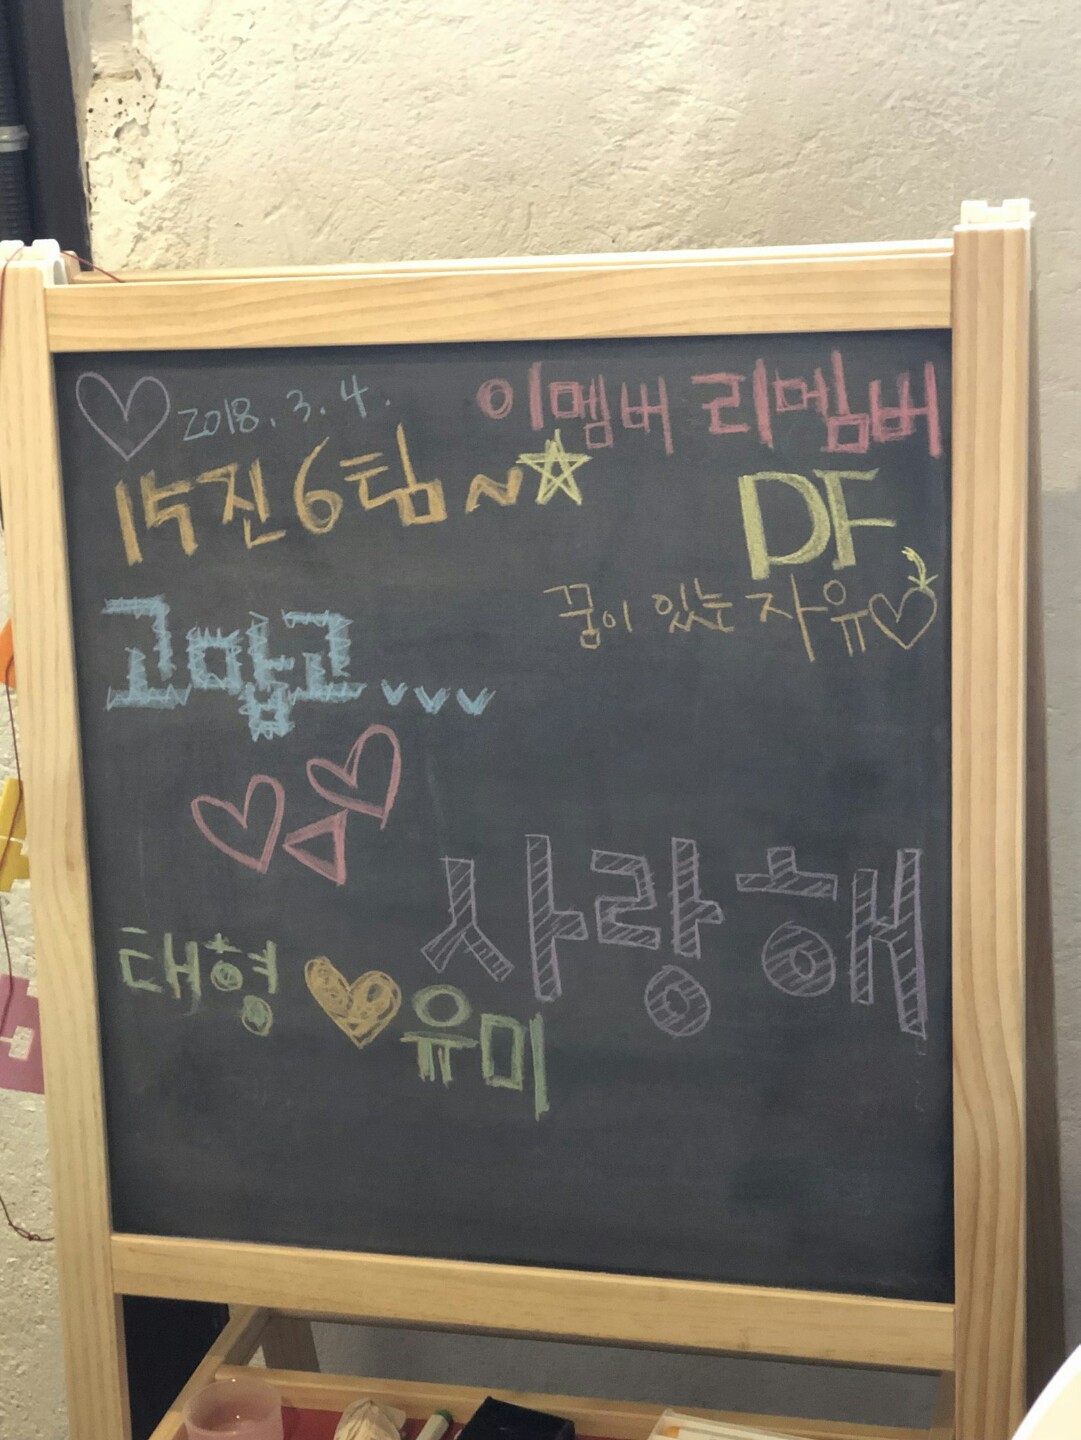 2018.3.4.
이멤버 리멤버
15진 6팀~
DF
꿈이 있는 자유
고맙고...
사랑해
태형
유미